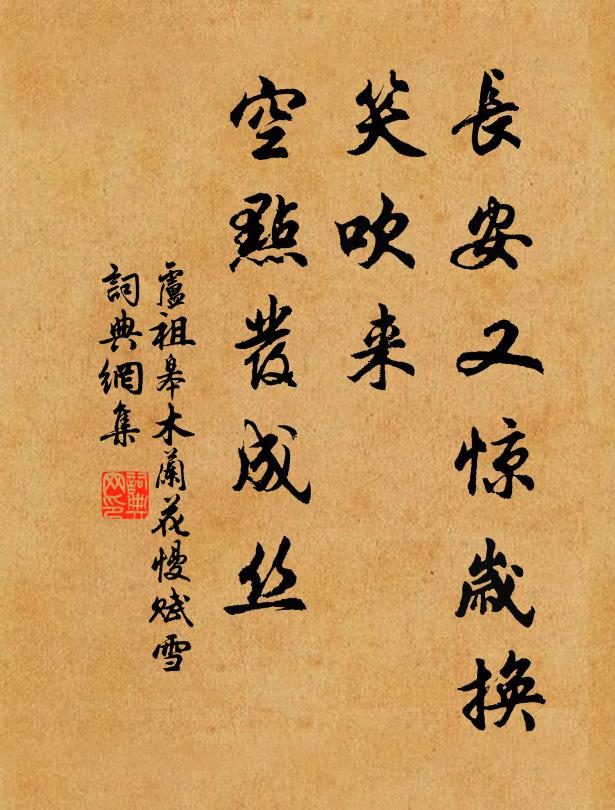 長安又惊歲換
笑吹来
空點發成丝
盧祖皋木蘭花慢賦雪
詞典網集
詞典
网印